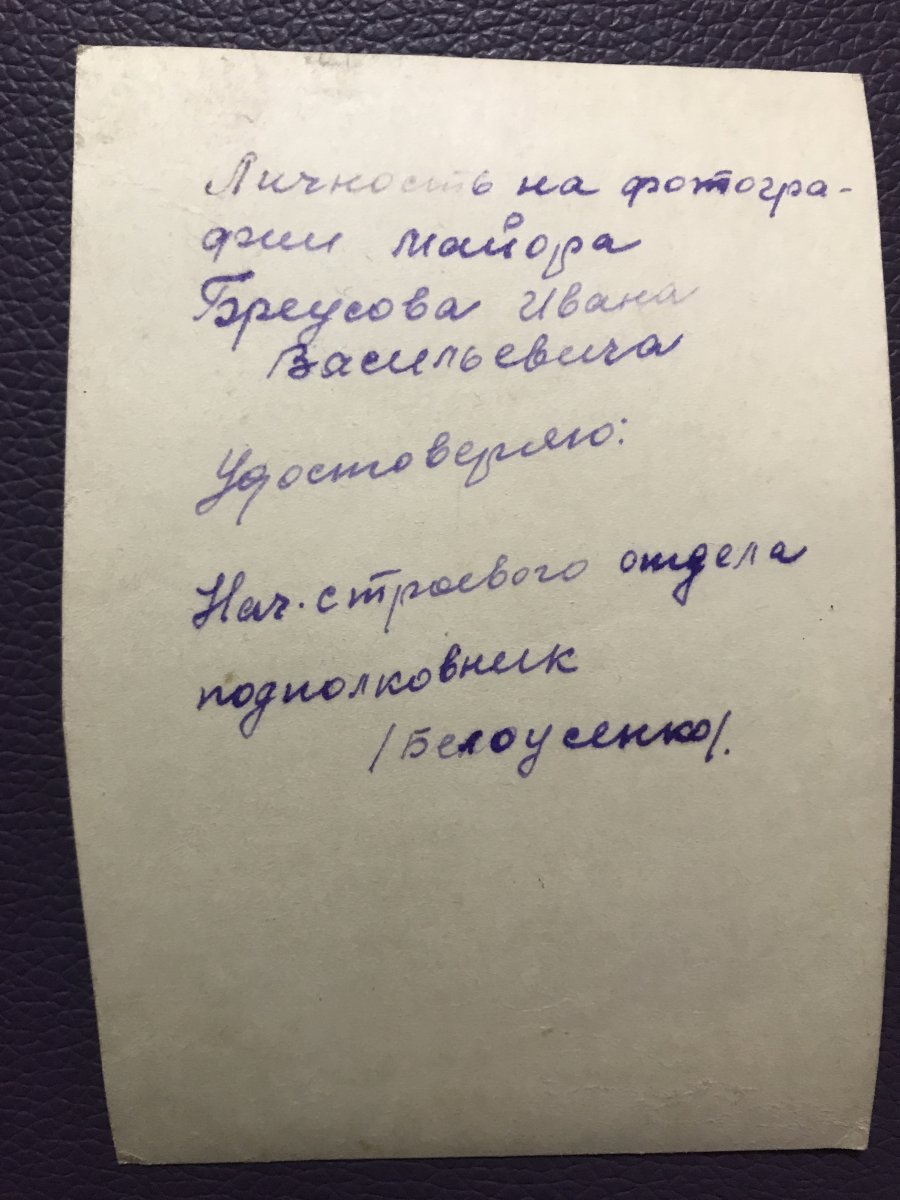 Личность на фотогра-
фии майора
Бреусова Ивана
Васильевича
Удостоверяю:
Нач. строевого отдела
подполковник
/Белоусенко/.